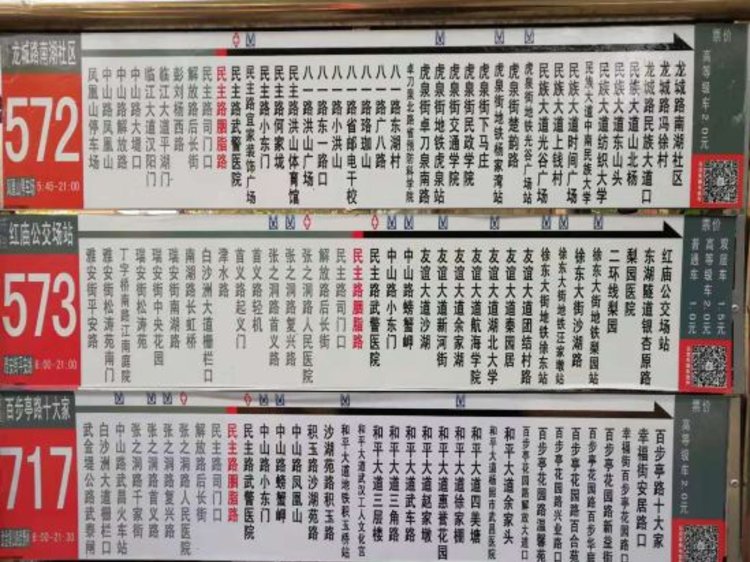 龙城路南湖社区
572
5:45-21:00
凤凰山停车场
中山路凤凰山
中山路解放路
中山路大堤口
临江大道汉阳门
临江大道平湖门
彭刘杨西路
解放路后长街
民主路司门口
民主路胭脂路
民主路武警医院
民主路宜家装饰广场
民主路小东门
民主路何家垅
民主路洪山体育馆
八一路洪山广场
八一路东一路口
八一路小洪山
八一路省邮电干校
八一路珞珈山
八一路广八路
八一路东湖村
卓刀泉北路省预防科学院
虎泉街卓刀泉南路
虎泉街地铁虎泉站
虎泉街交通学院
虎泉街民政学院
虎泉街下马庄
虎泉街地铁杨家湾站
虎泉街楚韵路
虎泉街地铁光谷广场站
民族大道光谷广场
民族大道上钱村
民族大道时间广场
民族大道中南民族大学
民族大道纺织大学
民族大道东山头
民族大道山北杨
龙城路民族大道口
龙城路冯徐村
龙城路南湖社区
票价
高等级车2.0元
红庙公交场站
573
6:00-21:00
雅安街平安路
雅安街松涛苑南门
丁字桥南路江南庭院
瑞安街松涛苑
瑞安街中央花园
瑞安街南湖路
南湖路长虹桥
白沙洲大道栅栏口
津水路
首义路起义门
首义路轻机
张之洞路首义路
张之洞路复兴路
张之洞路人民医院
解放路后长街
民主路司门口
民主路胭脂路
民主路武警医院
中山路小东门
中山路螃蟹岬
友谊大道沙湖
友谊大道新河街
友谊大道余家湖
友谊大道航海学院
友谊大道湖北大学
友谊大道秦园居
友谊大道团结村路
徐东大街地铁徐东站
徐东大街地铁汪家墩站
徐东大街沙湖路
徐东大街地铁梨园站
二环线梨园
梨园医院
东湖隧道银杏原路
红庙公交场站
票价
普通车 1.0元
高等级车 2.0元
双层车 1.5元
百步亭路十大家
717
6:00-21:30
武金堤公路武泰闸
白沙洲大道栅栏口
中山路武昌火车站
张之洞路千家街
张之洞路首义路
张之洞路复兴路
张之洞路人民医院
解放路后长街
民主路司门口
民主路胭脂路
民主路武警医院
中山路小东门
中山路螃蟹岬
中山路凤凰山
积玉路沙湖苑路
沙湖苑路积玉路
和平大道地铁积玉桥站
和平大道武汉工人文化宫
和平大道三层楼
和平大道三角路
和平大道武车路
和平大道赵家墩
和平大道惠誉花园
和平大道徐家棚
和平大道四美塘
和平大道杨园市武昌医院
和平大道余家头
百步亭花园路解放大道口
百步亭花园路温馨苑
百步亭花园路兴业路口
百步亭花园路百合苑
百步亭花园路新益街
幸福街百步亭花园路口
幸福街安居路口
百步亭路十大家
票价
高等级车2.0元